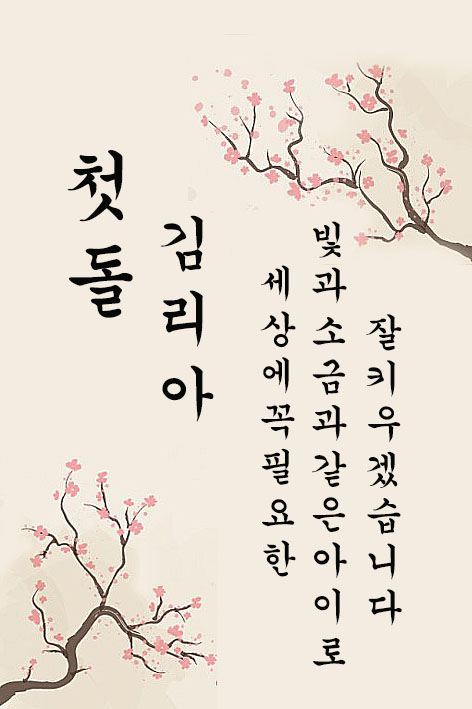 첫돌
김리아
세상에꼭필요한
빛과소금과같은아이로
잘키우겠습니다